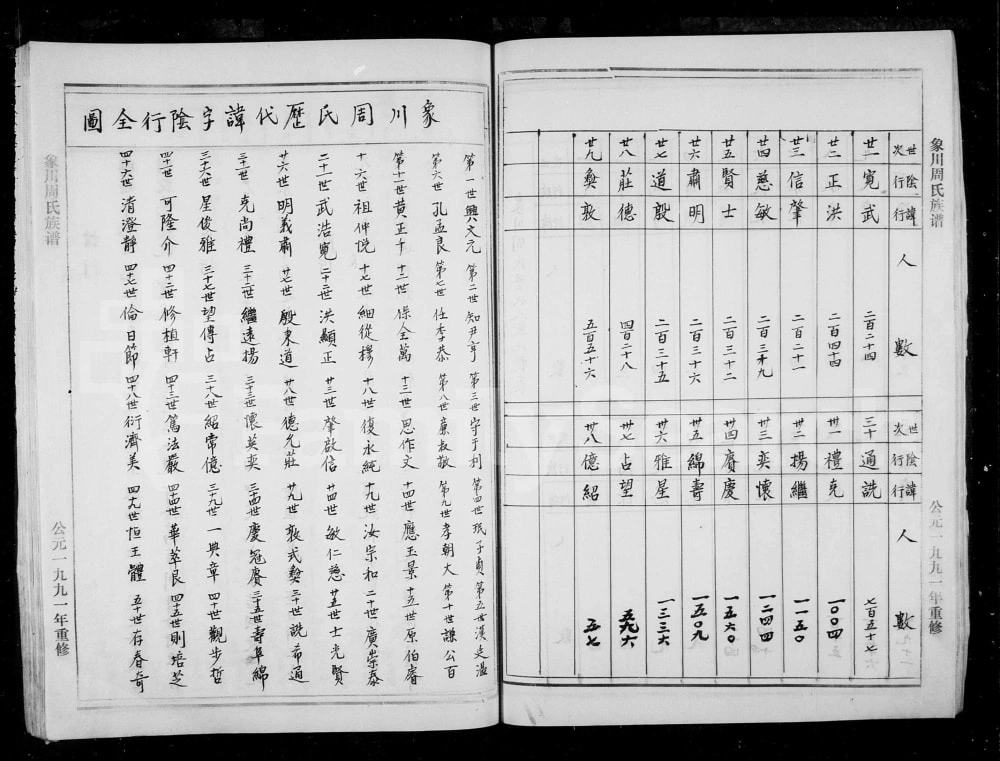 象川周氏族谱
公元一九九一年重修
世次 廿一 廿二 廿三 廿四 廿五 廿六 廿七 廿八 廿九
陰行 寬 正 信 慈 賢 肅 道 莊 奐
諱行 武 洪 肇 敏 士 明 殷 德 敦
人數 二百二十四 二百四十四 二百二十一 二百三十九 二百三十二 二百三十六 二百三十五 四百二十八 五百五十六
世次 三十 卅一 卅二 卅三 卅四 卅五 卅六 卅七 卅八
陰行 通 禮 揚 奕 賡 綿 雅 占 億
諱行 詵 克 繼 懷 慶 壽 星 望 紹
人數 七百五十七 一〇〇四 一一五〇 一二四四 一五六〇 一五〇九 一三三六 五七
象川周氏歷代諱字陰行全圖
第一世興文元 第二世知尹亨 第三世守于利 第四世珉子貞 第五世漢廷溫
第六世孔孟良 第七世任季恭 第八世廉叔敬 第九世孝朝大 第十世謙公百
第十一世黄正千 十二世保全萬 十三世思作文 十四世應玉景 十五世原伯睿
十六世祖仲悦 十七世細從穆 十八世復永純 十九世汝宗和 二十世廣崇泰
二十一世武浩寬 二十二世洪顯正 廿三世肇啟信 廿四世敏仁慈 廿五世士光賢
廿六世明義肅 廿七世殷東道 廿八世德允莊 廿九世敦式奐 三十世詵希通
三十一世克尚禮 三十二世繼遠揚 三十三世懷英奕 三十四世慶冠賡 三十五世壽阜綿
三十六世星俊雅 三十七世望傳占 三十八世紹常億 三十九世一興章 四十世觀步哲
四十一世可隆介 四十二世修植軒 四十三世篤法嚴 四十四世華萃艮 四十五世則培芝
四十六世清澄靜 四十七世倫日節 四十八世衍濟美 四十九世恒王體 五十世存春奇
象川周氏族谱
公元一九九一年重修